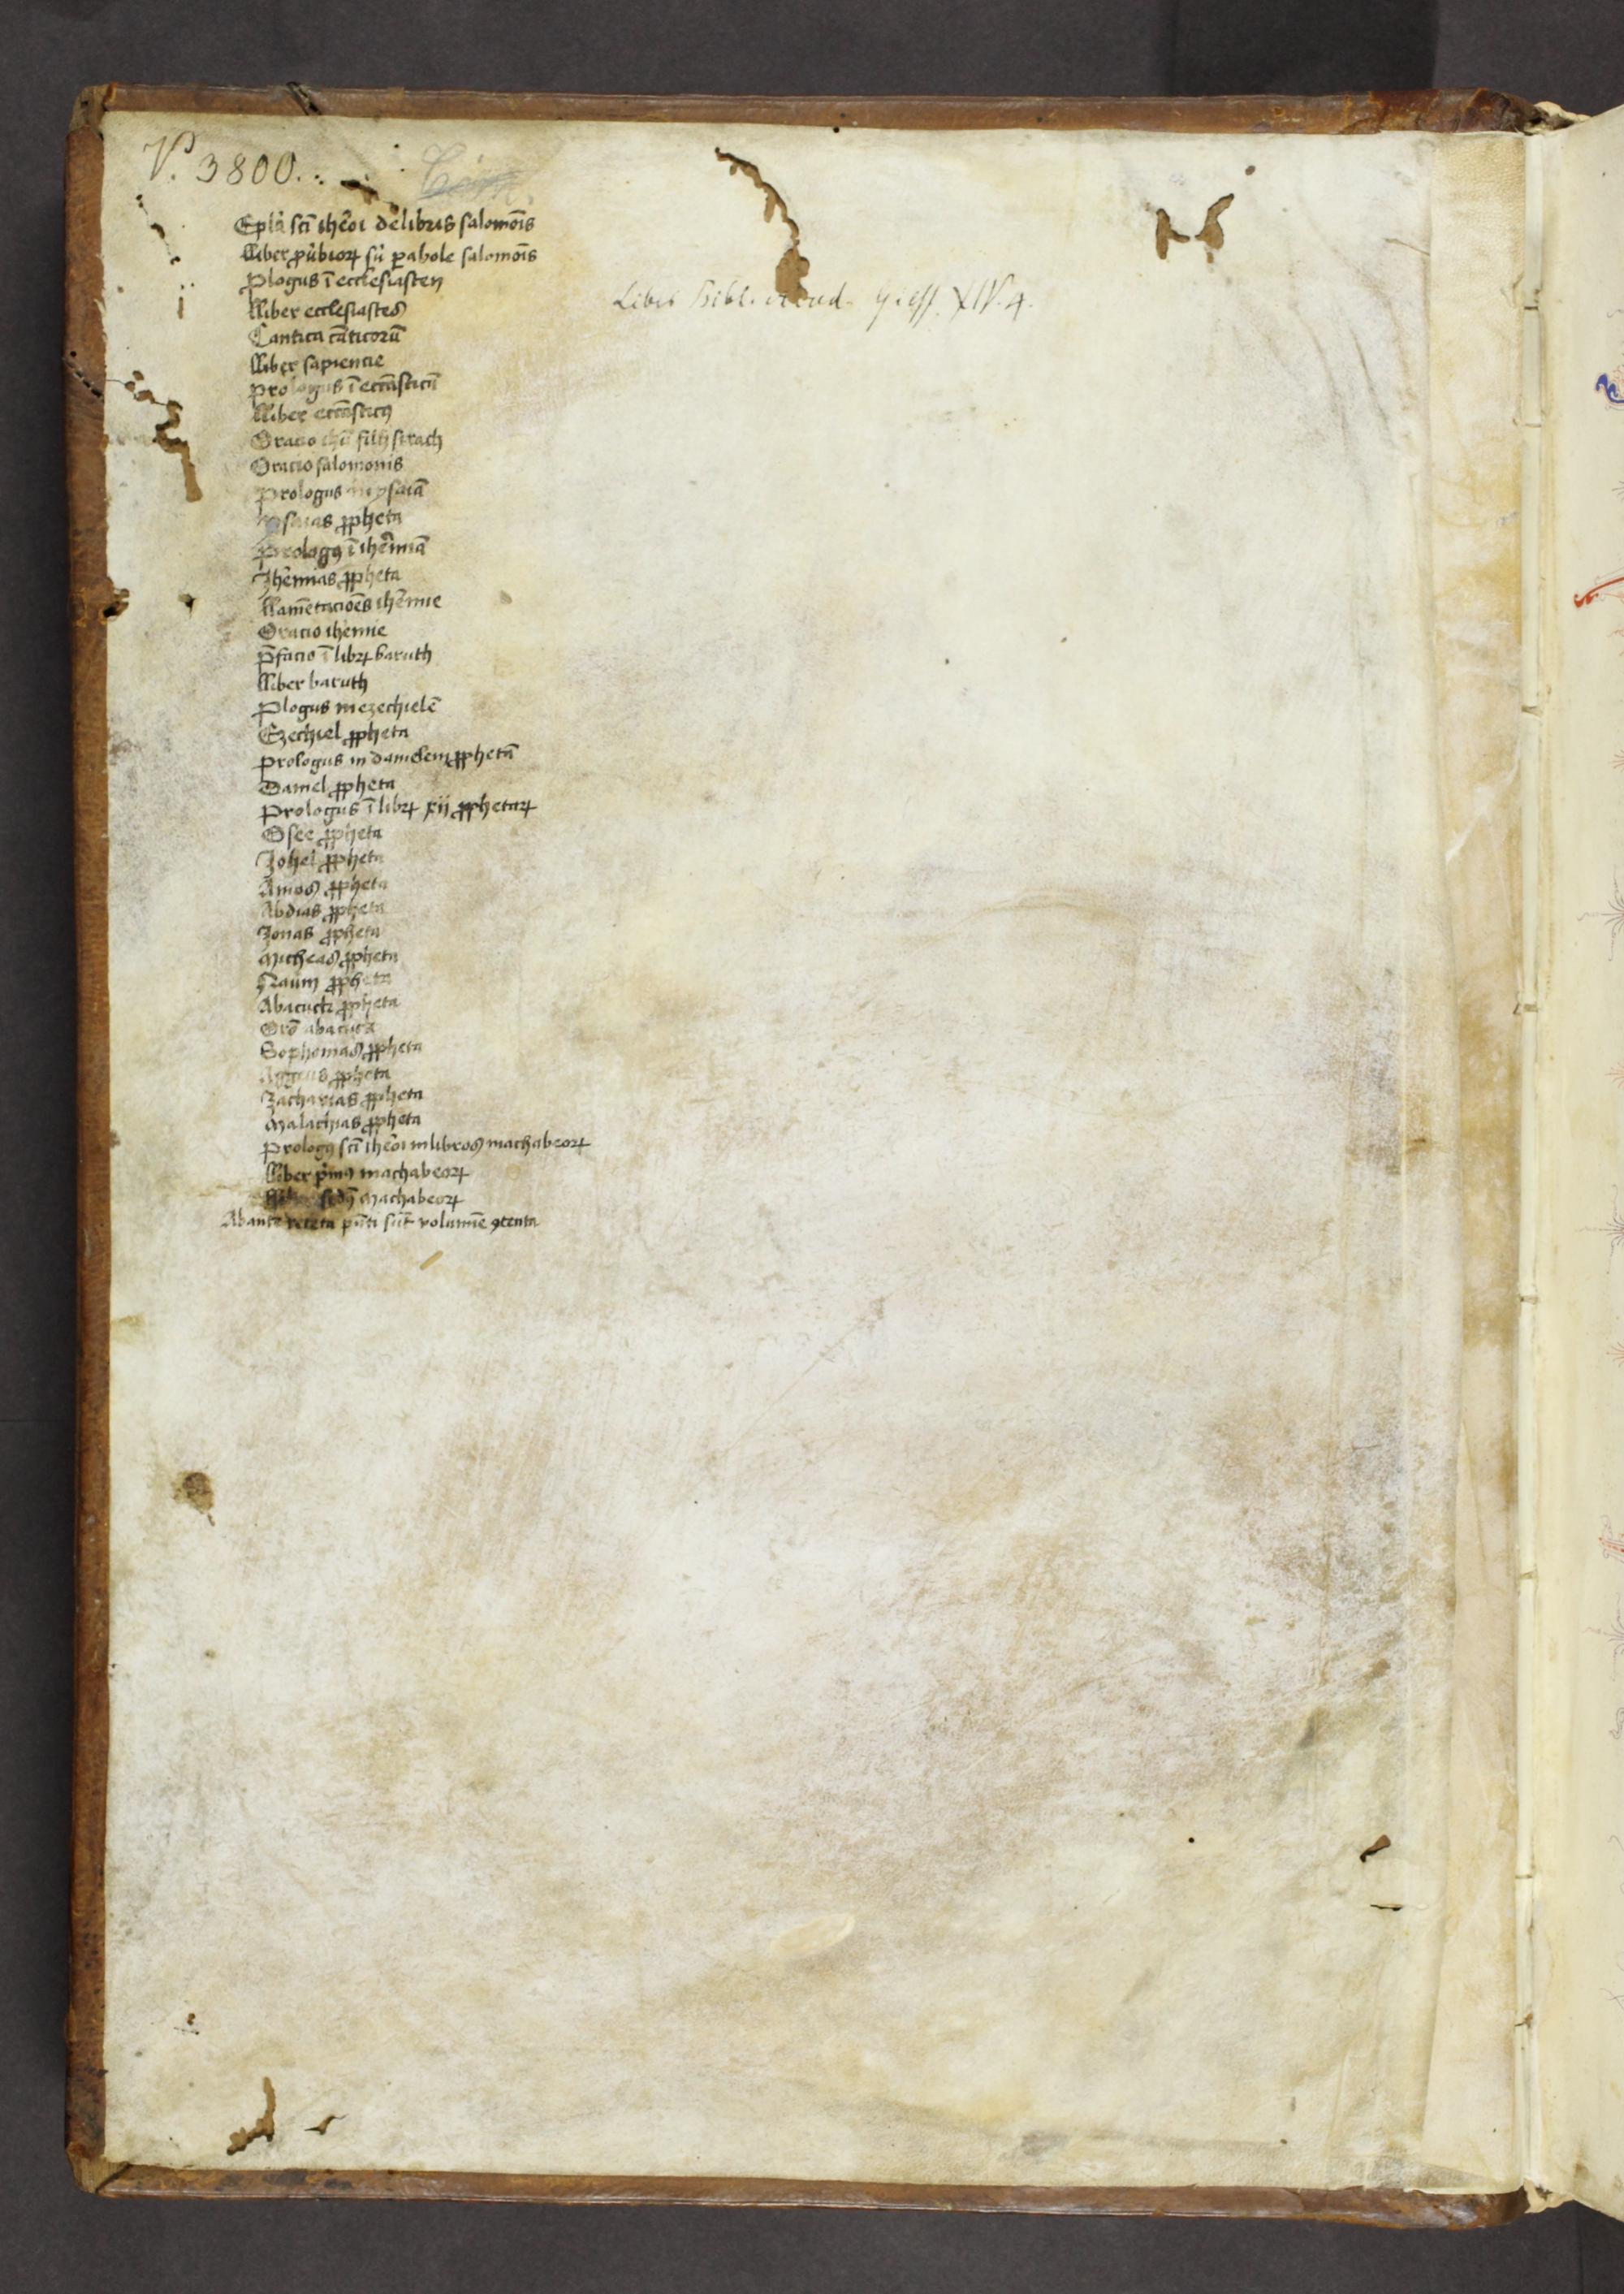 V. 3800.
Epl̃a sct̃i ih̃eoi de libris salomõis
Liber ꝓũbioꝝ sũ ꝑabole salomõis
Plogus ĩ ecclesiasten
Liber ecclesiastes
Cantica cãticorũ
Liber sapiencie
prologus ĩ eccãsticũ
Liber eccãsticꝯ
Oracio ihũ filij sirach
Oracio salomonis
Prologus in ysaiã
ysaias ꝓpheta
Prologꝯ ĩ ih̃emiã
Jh̃emias ꝓpheta
Lamẽtacioẽs ih̃emie
Oracio ih̃emie
p̃facio ĩ libꝝ baruth
Liber baruth
Plogus in ezechielẽ
Ezechiel ꝓpheta
prologus in danielem ꝓphetã
Daniel ꝓpheta
Prologus ĩ libꝝ xij ꝓphetaꝝ
Osee ꝓpheta
Johel ꝓpheta
Amos ꝓpheta
Abdias ꝓpheta
Jonas ꝓpheta
Micheas ꝓpheta
Naum ꝓpheta
Abacuck ꝓpheta
Orõ abacuck
Sophonias ꝓpheta
Aggeus ꝓpheta
Zacharias ꝓpheta
Malachias ꝓpheta
Prologꝯ sct̃i ih̃eoi in libros machabeoꝝ
Liber p̃mꝯ machabeoꝝ
Liber scd̃ꝯ Machabeoꝝ
Ab ante p̃nti sũt volumĩe ꝯtenta
Liber Bibl. acad. Giess. XIV. 4.